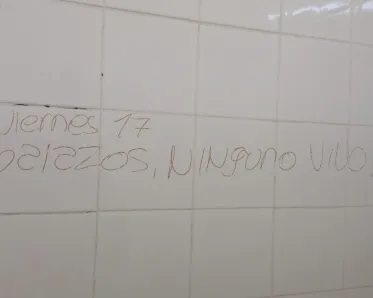 viernes 17
balazos, NINGUNO VIVO